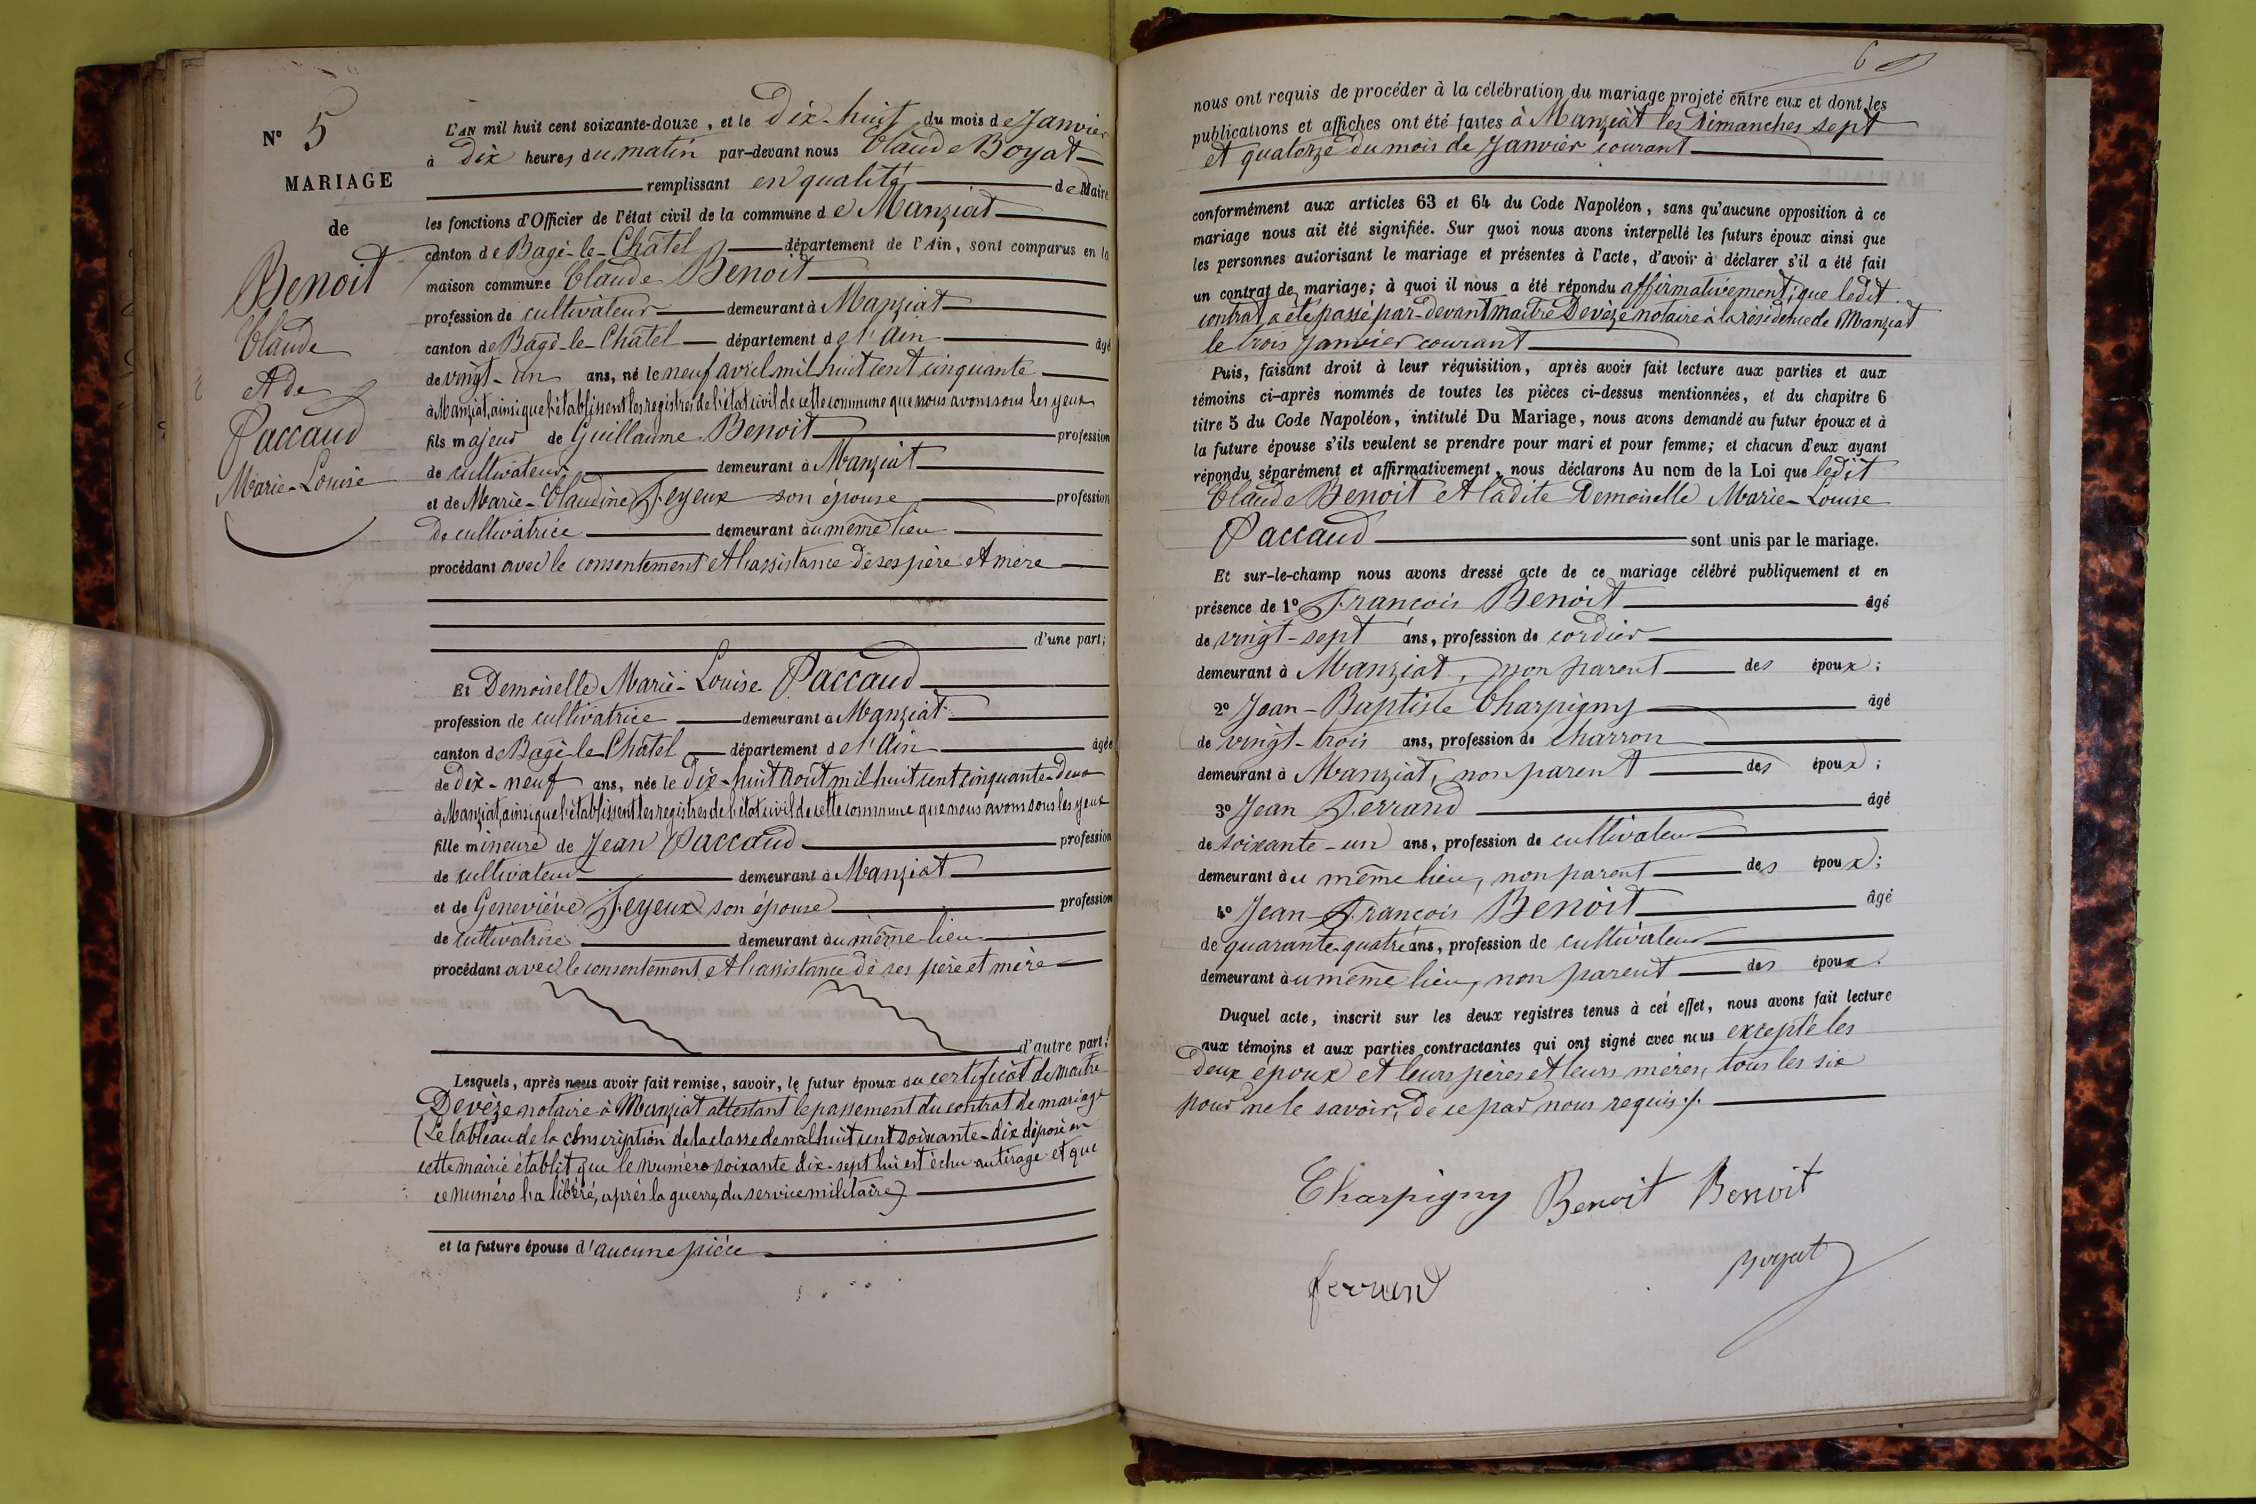 N° 5
MARIAGE
de
Benoit
Claude
Et de
Paccaud
Marie-Louise
L'AN mil huit cent soixante-douze, et le Dix-huit du mois de Janvier
à Dix heures du matin par-devant nous Claude Boyat
remplissant en qualité de Maire
les fonctions d'Officier de l'état civil de la commune de Manziat
canton de Bagé-le-Châtel département de l'Ain, sont comparus en la
maison commune Claude Benoit
profession de cultivateur demeurant à Manziat
canton de Bagé-le-Châtel département de l'Ain âgé
de vingt-un ans, né le neuf avril mil huit cent cinquante
à Manziat, ainsi que l'établissent les registres de l'état civil de cette commune que nous avons sous les yeux
fils majeur de Guillaume Benoit profession
de cultivateur demeurant à Manziat
et de Marie-Claudine Feyeux son épouse profession
De cultivatrice demeurant au même lieu
procédant avec le consentement et l'assistance de ses père et mère
d'une part;
Et Demoiselle Marie-Louise Paccaud
profession de cultivatrice demeurant à Manziat
canton de Bagé-le-Châtel département de l'Ain âgée
de dix-neuf ans, née le dix-huit Août mil huit cent cinquante-deux
à Manziat, ainsi que l'établissent les registres de l'état civil de cette commune que nous avons sous les yeux
fille mineure de Jean Paccaud profession
de cultivateur demeurant à Manziat
et de Geneviève Feyeux son épouse profession
de cultivatrice demeurant au même lieu
procédant avec le consentement et l'assistance de ses père et mère
d'autre part!
Lesquels, après nous avoir fait remise, savoir, le futur époux du certificat de maître
Devèze notaire à Manziat attestant le passement du contrat de mariage
(Le tableau de la conscription de la classe de mil huit cent soixante-dix déposé en
cette mairie établit que le numéro soixante dix-sept lui est échu au tirage et que
ce numéro l'a libéré, après la guerre, du service militaire)
et la future épouse d'aucune pièce
6
nous ont requis de procéder à la célébration du mariage projeté entre eux et dont les
publications et affiches ont été faites à Manziat les Dimanches sept
et quatorze du mois de Janvier courant
conformément aux articles 63 et 64 du Code Napoléon, sans qu'aucune opposition à ce
mariage nous ait été signifiée. Sur quoi nous avons interpellé les futurs époux ainsi que
les personnes autorisant le mariage et présentes à l'acte, d'avoir à déclarer s'il a été fait
un contrat de mariage; à quoi il nous a été répondu affirmativement; que ledit
contrat a été passé par-devant maître Devèze notaire à la résidence de Manziat
le trois Janvier courant
Puis, faisant droit à leur réquisition, après avoir fait lecture aux parties et aux
témoins ci-après nommés de toutes les pièces ci-dessus mentionnées, et du chapitre 6
titre 5 du Code Napoléon, intitulé Du Mariage, nous avons demandé au futur époux et à
la future épouse s'ils veulent se prendre pour mari et pour femme; et chacun d'eux ayant
répondu séparément et affirmativement, nous déclarons Au nom de la Loi que ledit
Claude Benoit et ladite Demoiselle Marie-Louise
Paccaud sont unis par le mariage.
Et sur-le-champ nous avons dressé acte de ce mariage célébré publiquement et en
présence de 1° François Benoit âgé
de vingt-sept ans, profession de cordier
demeurant à Manziat, non parent des époux;
2° Jean-Baptiste Charpigny âgé
de vingt-trois ans, profession de charron
demeurant à Manziat, non parent des époux;
3° Jean Ferrand âgé
de soixante-un ans, profession de cultivateur
demeurant au même lieu, non parent des époux;
4° Jean-François Benoit âgé
de quarante-quatre ans, profession de cultivateur
demeurant au même lieu, non parent des époux.
Duquel acte, inscrit sur les deux registres tenus à cet effet, nous avons fait lecture
aux témoins et aux parties contractantes qui ont signé avec nous excepté les
deux époux et leurs pères et leurs mères, tous les six
pour ne le savoir, de ce par nous requis ./.
Charpigny Benoit Benoit
ferrend Boyat